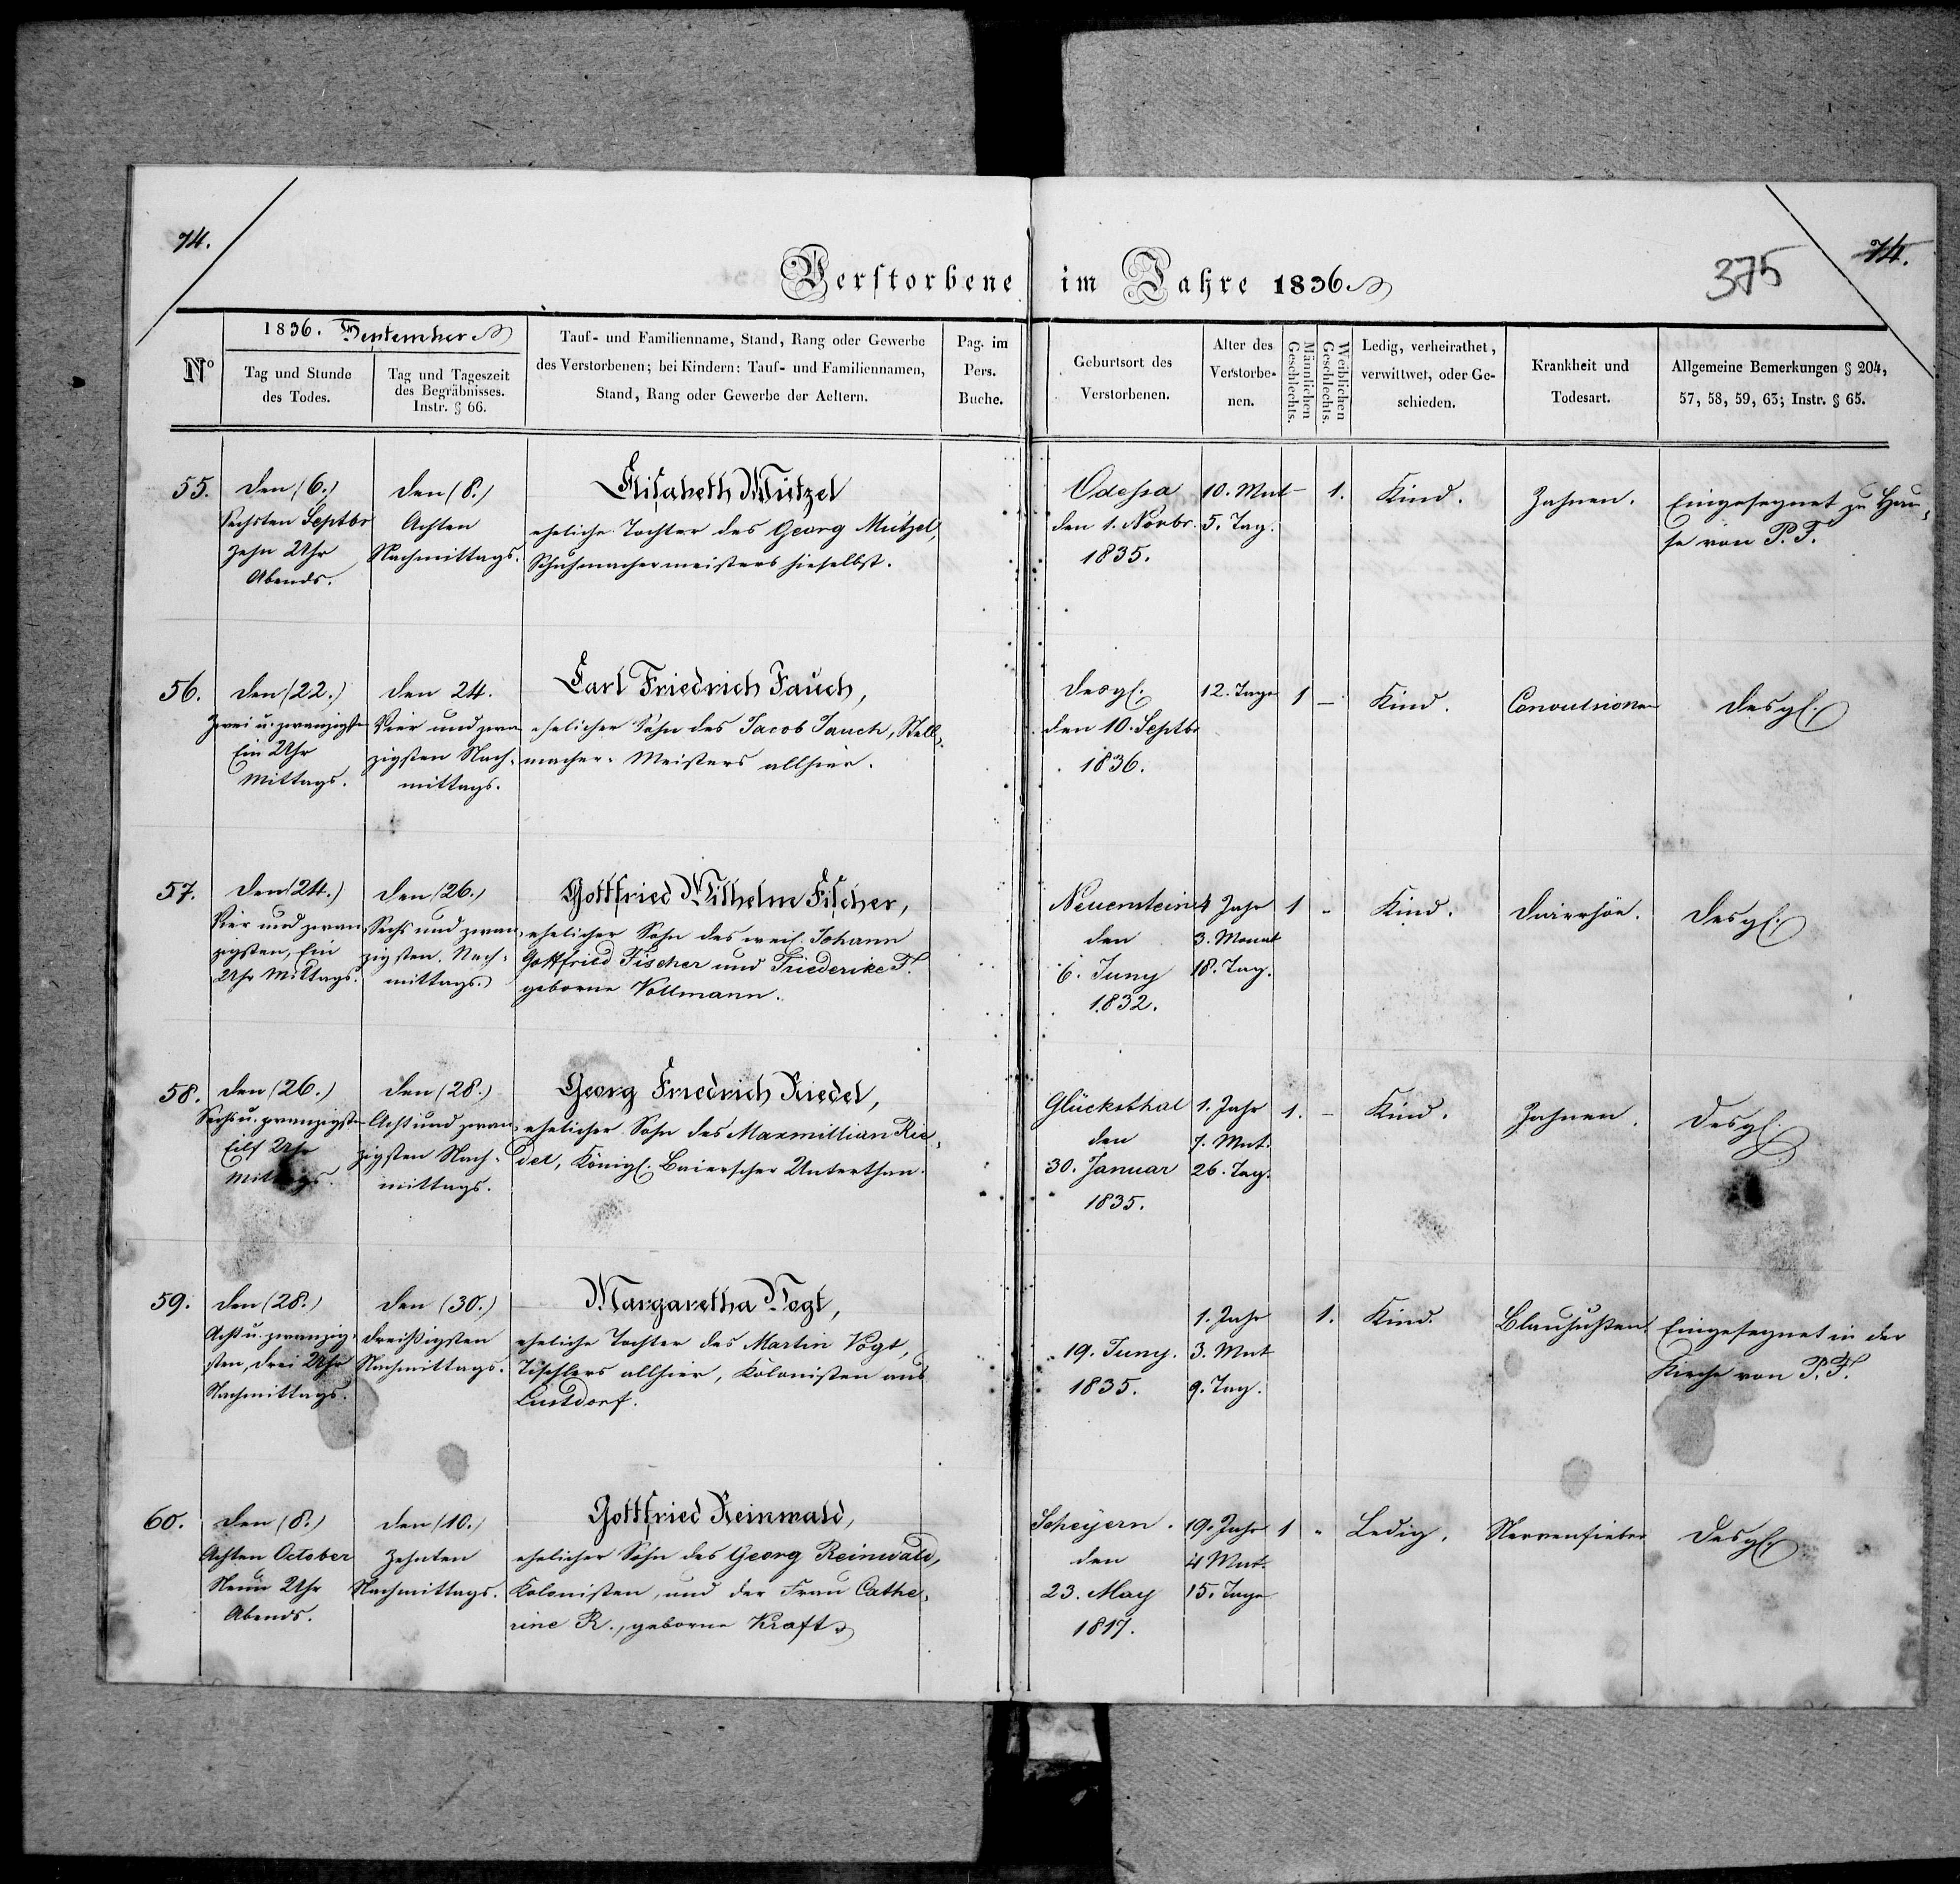 74.
74.
375
Verstorbene im Jahre 1836
No
1836. September
Tag und Stunde
des Todes.
Tag und Tageszeit
des Begräbnisses.
Instr. § 66.
Tauf- und Familienname, Stand, Rang oder Gewerbe
des Verstorbenen; bei Kindern: Tauf- und Familiennamen,
Stand, Rang oder Gewerbe der Aeltern.
Pag. im
Pers.
Buche.
Geburtsort des
Verstorbenen.
Alter des
Verstorbe-
nen.
Männlichen
Geschlechts.
Weiblichen
Geschlechts.
Ledig, verheirathet,
verwittwet, oder Ge-
schieden.
Krankheit und
Todesart.
Allgemeine Bemerkungen § 204,
57, 58, 59, 63; Instr. § 65.
55.
den (6.)
Sechsten Septbr
Zehn Uhr
Abends.
den (8.)
Achten
Nachmittags.
Elisabeth Mützel
eheliche Tochter des Georg Mützel,
Schuhmachermeisters hieselbst.
Odessa
den 1. Novbr.
1835.
10. Mnt
5. Tag.
-
1.
Kind.
Zahnen.
Eingesegnet zu Hau-
se von P. F.
56.
den (22.)
Zwei u. zwanzigsten
Ein Uhr
Mittags.
den 24.
Vier und zwan
zigsten Nach-
mittags.
Carl Friedrich Jauch,
ehelicher Sohn des Jacob Jauch, Stell-
macher-Meisters allhier.
desgl.
den 10. Septbr
1836.
12. Tage
1
-
Kind.
Convulsionen
desgl.
57.
den (24.)
Vier und zwan
zigsten, Ein
Uhr Mittags.
den (26.)
Sechs und zwan-
zigsten. Nach-
mittags.
Gottfried Wilhelm Fischer,
ehelicher Sohn des weil. Johann
Gottfried Fischer und Friederike F.
geborne Vollmann.
Neuenstein
den
6. Juny
1832.
4 Jahr
3. Monat
18. Tag.
1
-
Kind.
Diarrhöe.
desgl.
58.
den (26.)
Sechs u. zwanzigsten
Eilf Uhr
Mittags.
den (28.)
Acht und zwan-
zigsten Nach-
mittags.
Georg Friedrich Riedel,
ehelicher Sohn des Maxmillian Rie-
del, Königl. Baierscher Unterthan.
Glücksthal
den
30. Januar
1835.
1. Jahr
7. Mnt.
26. Tag.
1.
-
Kind.
Zahnen.
desgl.
59.
den (28.)
Acht u. zwanzig-
sten, drei Uhr
Nachmittags.
den (30.)
dreißigsten
Nachmittags.
Margaretha Vogt,
eheliche Tochter des Martin Vogt,
Tischlers allhier, Kolonisten aus
Lustdorf.
19. Juny.
1835.
1. Jahr
3. Mnt
9. Tag.
1.
Kind.
Blauhusten.
Eingesegnet in der
Kirche von P. F.
60.
den (8.)
Achten October
Neun Uhr
Abends.
den (10.)
Zehnten
Nachmittags.
Gottfried Reinwald,
ehelicher Sohn des Georg Reinwald,
Kolonisten, und der Frau Cathe-
rine R., geborne Kraft
Scheyern.
den
23. May
1817.
19. Jahr
4 Mnt.
15. Tage
1
-
Ledig.
Nervenfieber
desgl.